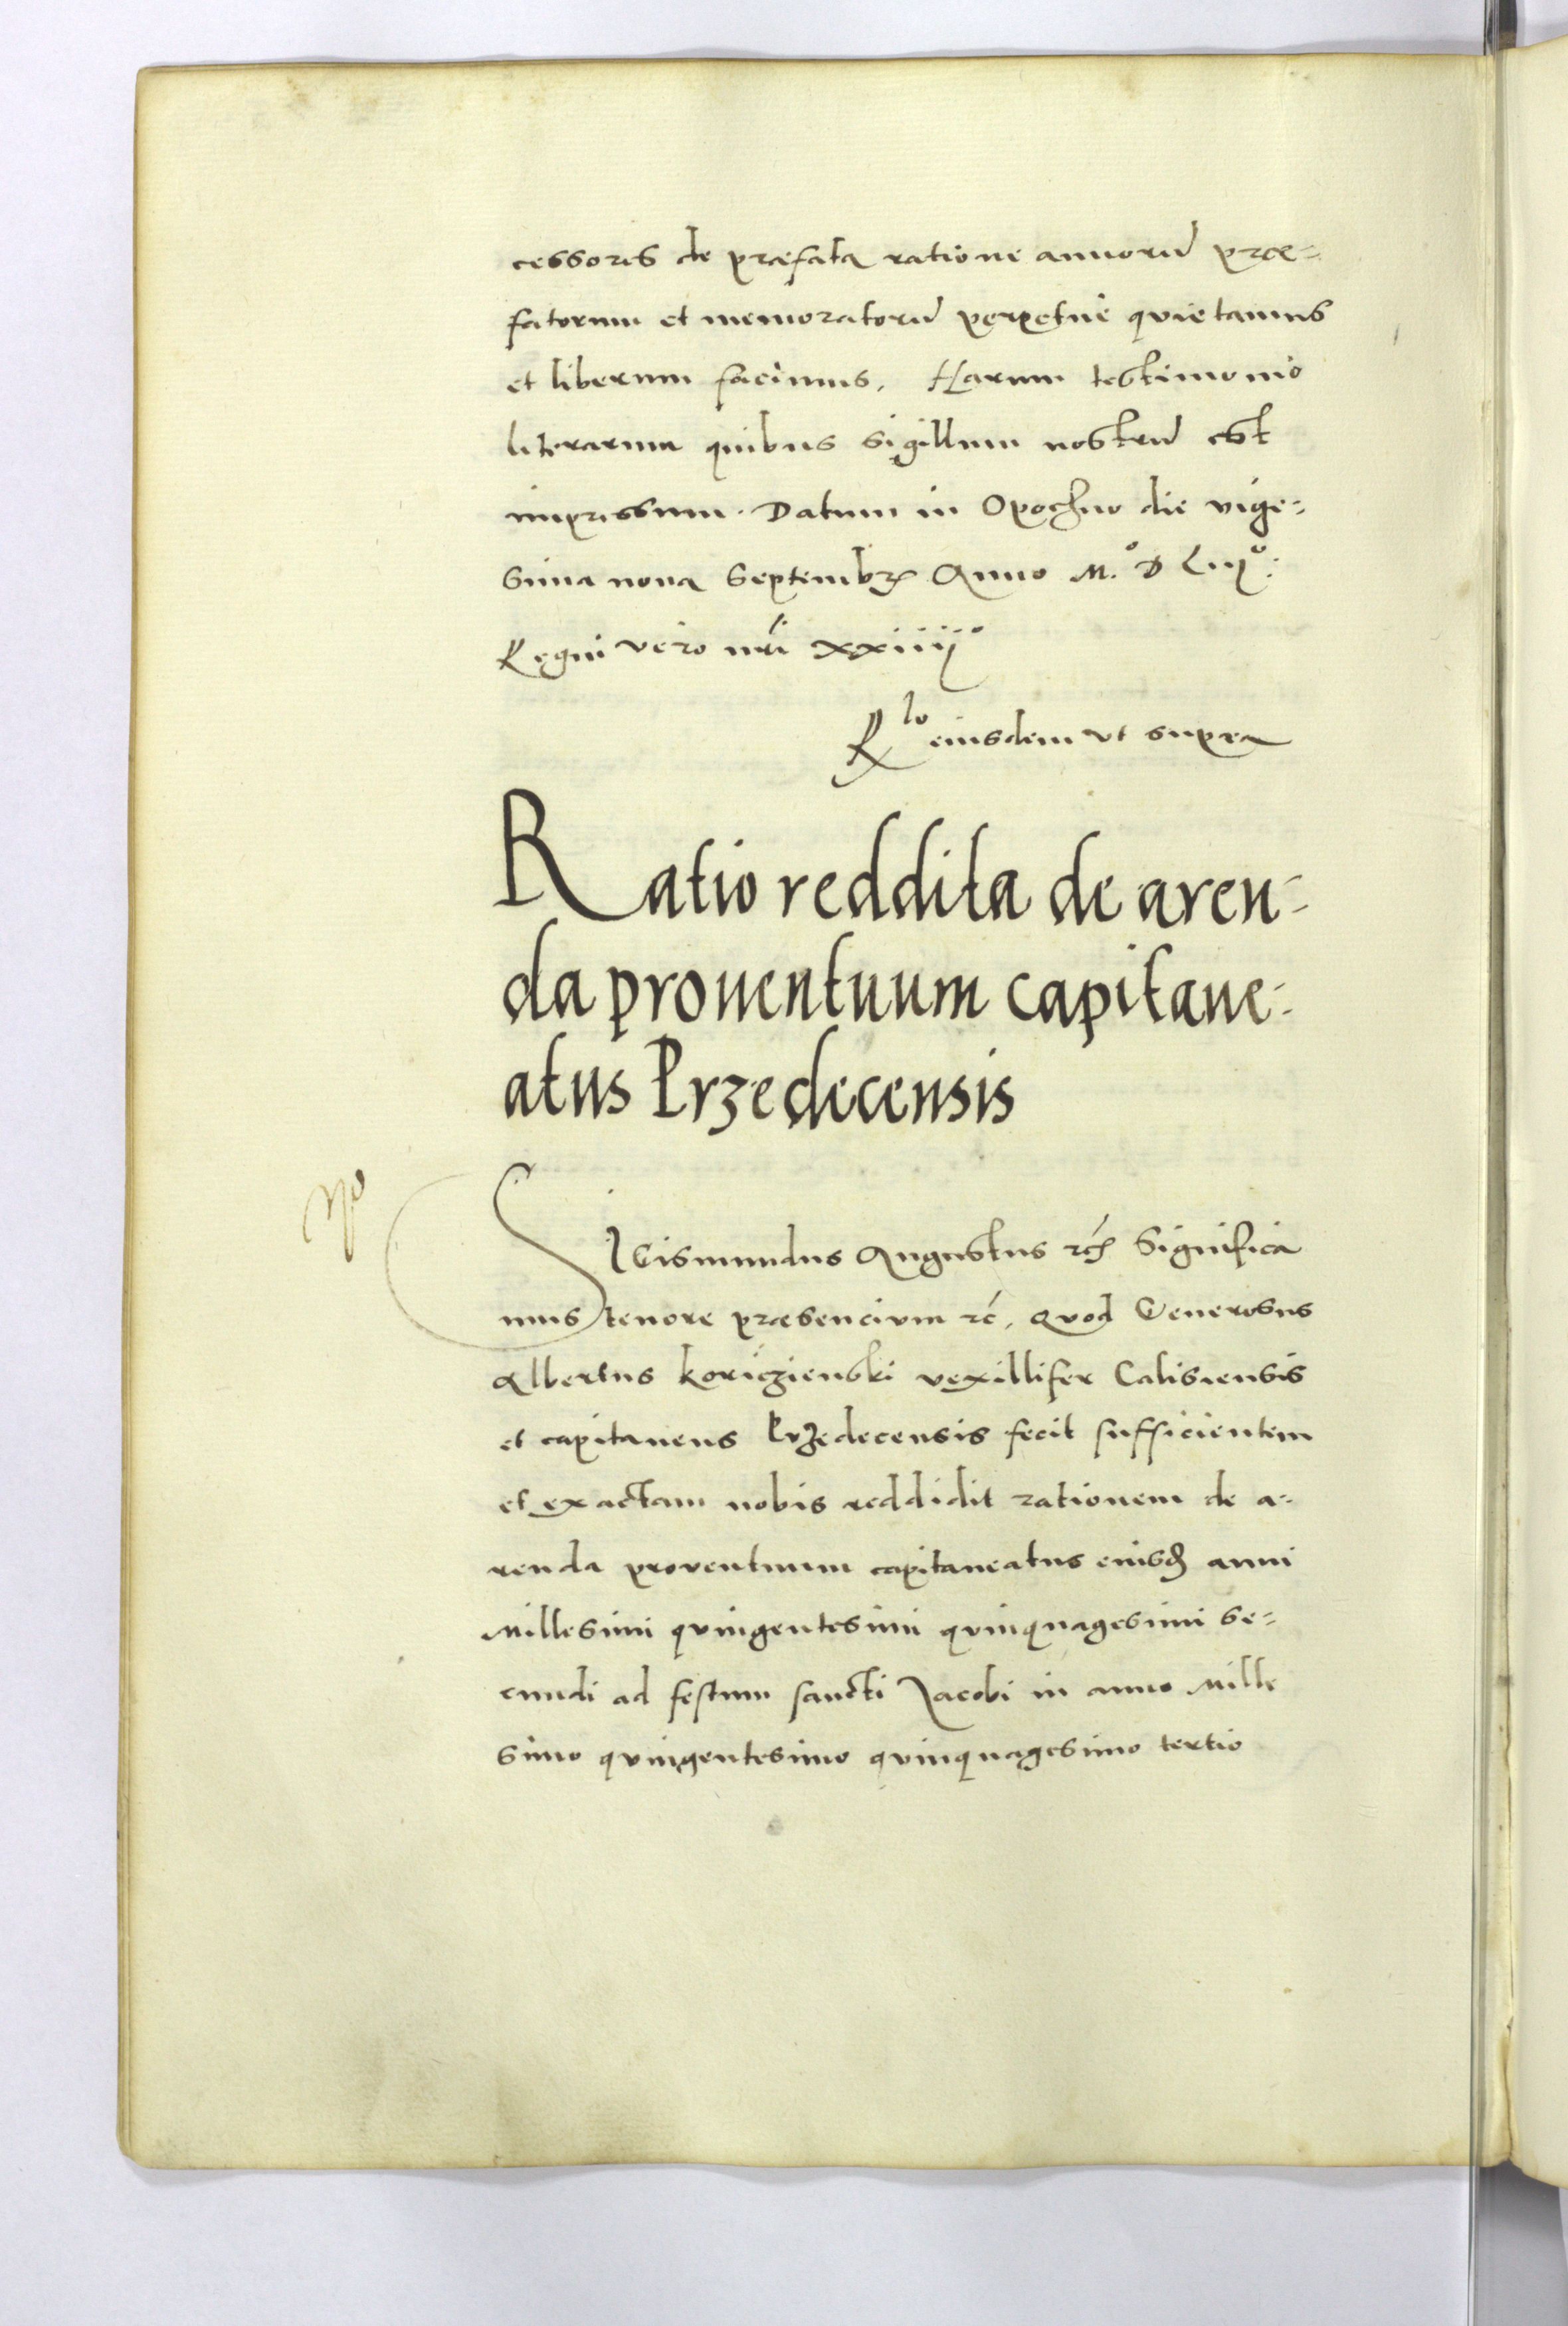 cessores de præfata ratione annorũ præ-
fatorum et memoratorũ perpetue quietamus
et liberum facimus. Harum testimonio
literarum quibus sigillum nostrũ est
impressum. Datum in Opoczno die vige-
sima nona Septembrꝭ Anno M.° D Liij°:
Regni vero nrĩ xxiiij°
Rlo eiusdem vt supra
Ratio reddita de aren-
da prouentuum capitane-
atus Przedecensis
SIGismundus Augustus etc̃ Significa
mus tenore præsencium etc̃. Quod Generosus
Albertus Koriczienski vexillifer Calisiensis
et capitaneus Przedecensis fecit sufficientem
et exactam nobis reddidit rationem de a-
renda proventuum capitaneatus eiusđ anni
Millesimi quingentesimi quinquagesimi se-
cundi ad festum sancti Jacobi in anno Mille
simo quingentesimo quinquagesimo tertio